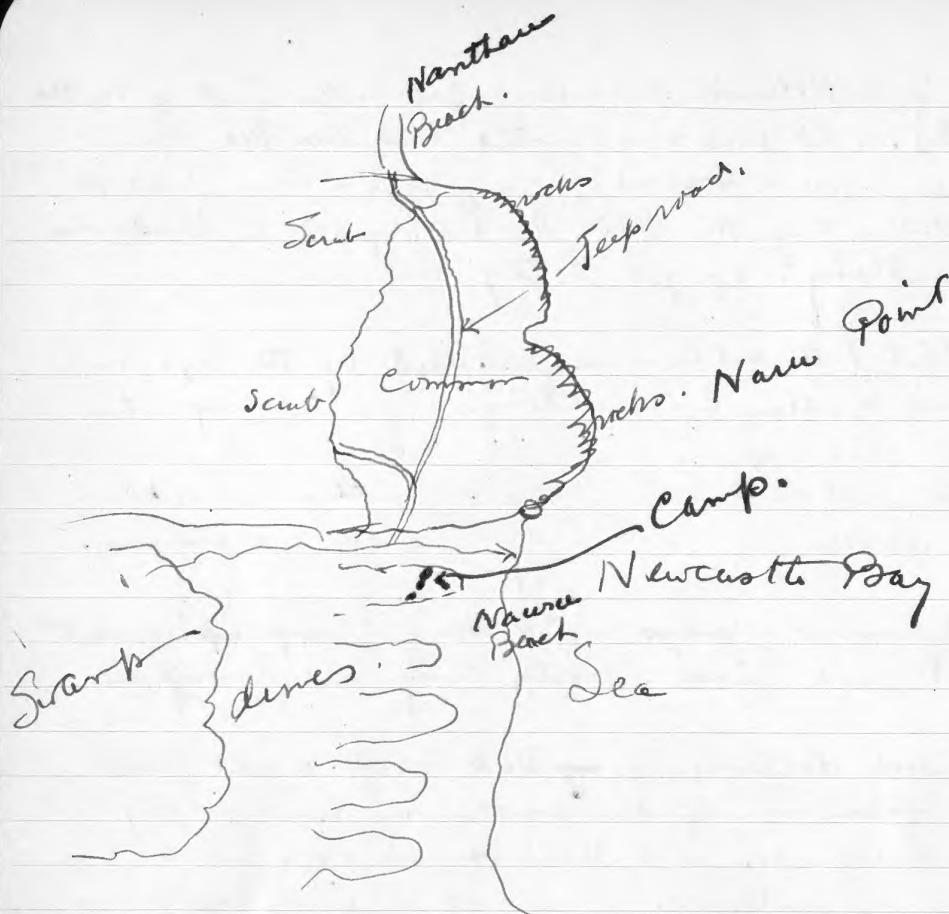 Nanthau
Beach.
rocks
Jeep road.
Scrub
Scrub
Common
rocks.
Naru Point
Camp.
Newcastle Bay
Beach
Swamp
dunes.
Sea